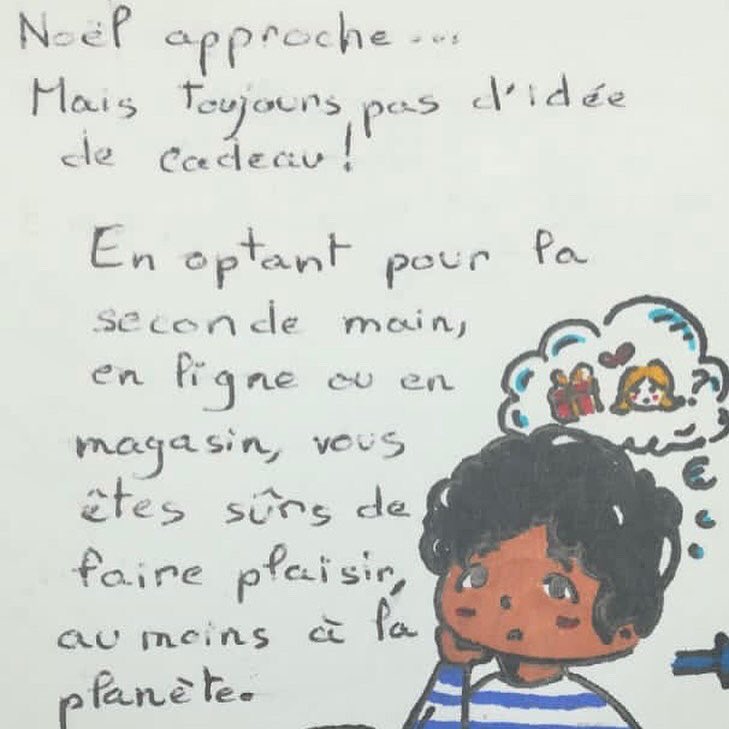 Noël approche...
Mais toujours pas d'idée
de cadeau!
En optant pour la
seconde main,
en ligne ou en
magasin, vous
êtes sûrs de
faire plaisir,
au moins à la
planète.
?